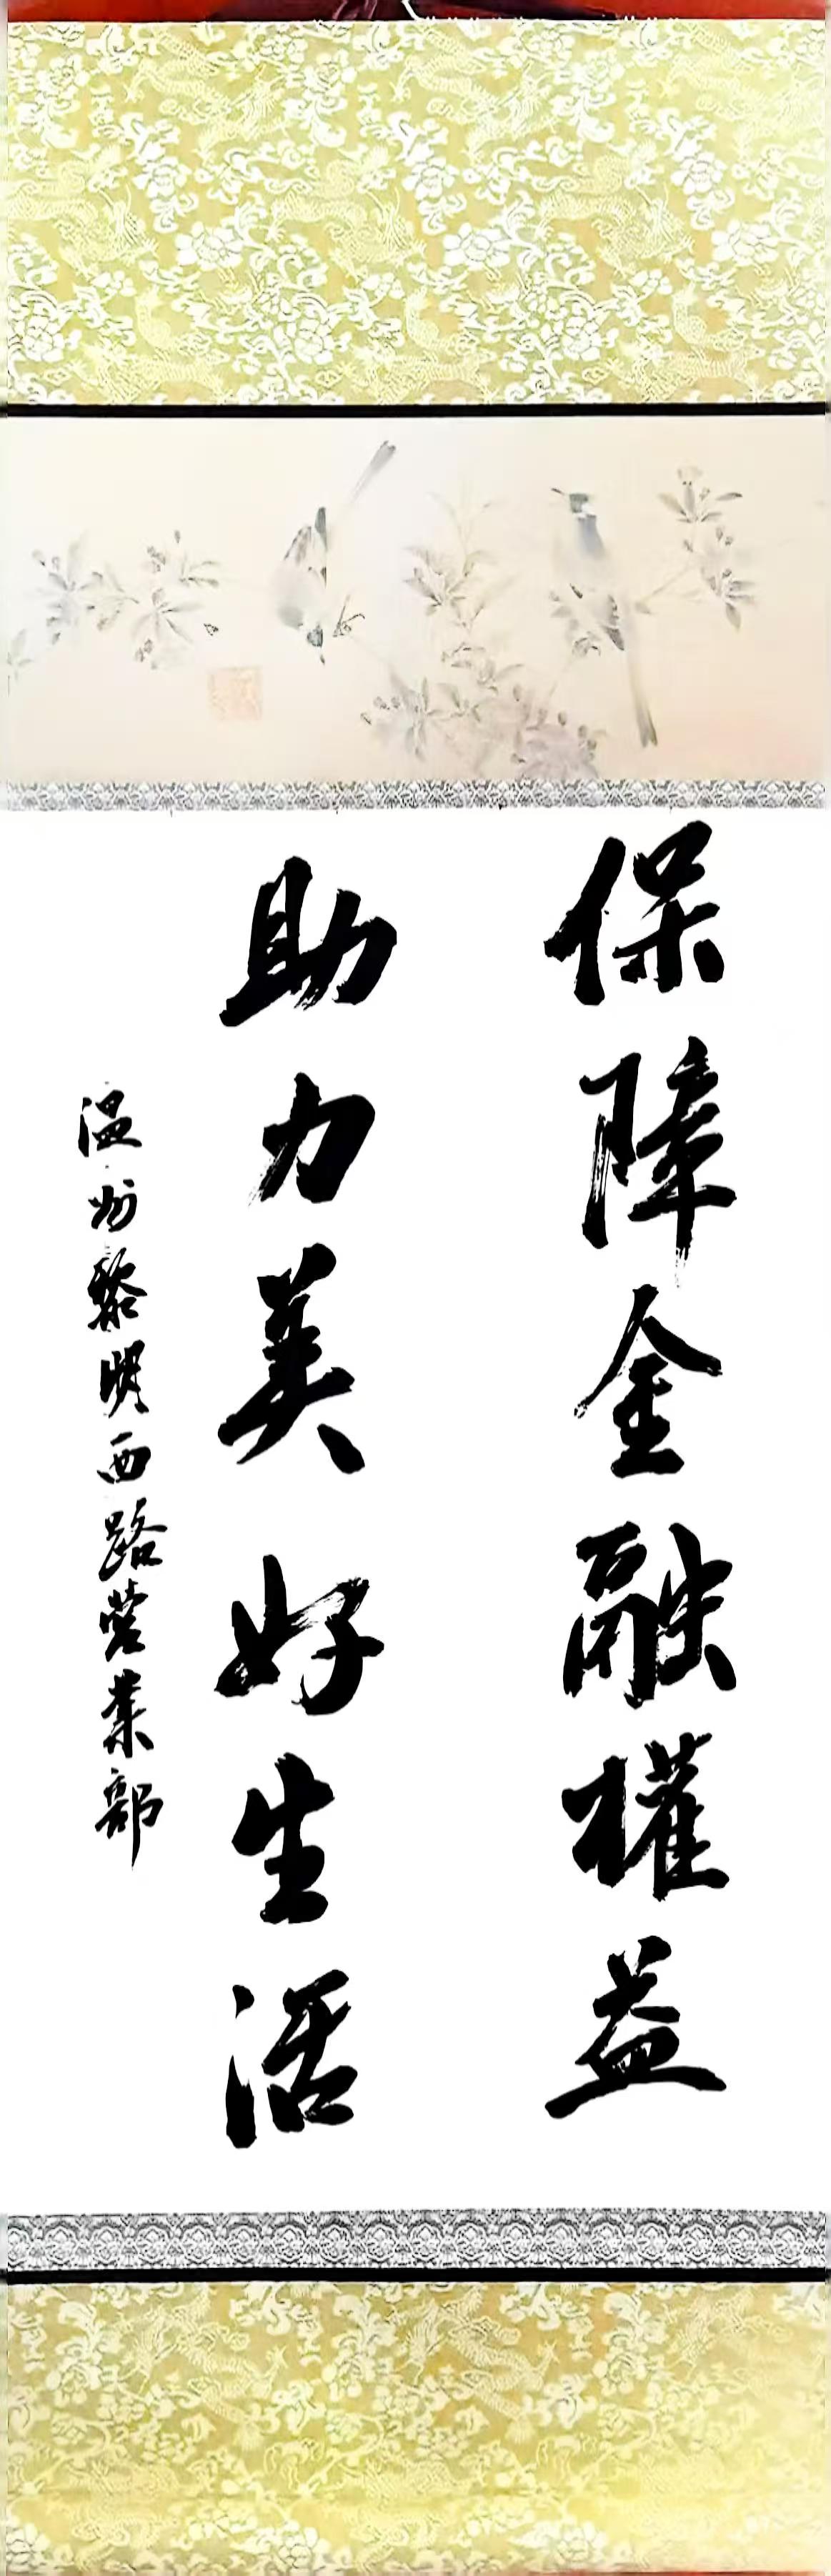 保障金融權益
助力美好生活
温州黎明西路营業部